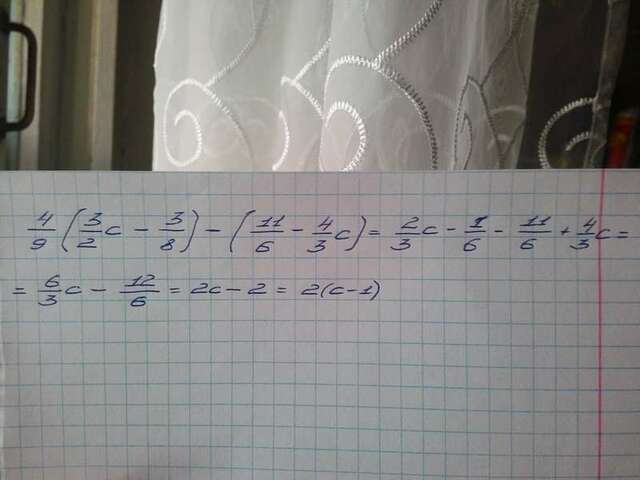 4/9 (3/2 c - 3/8) - (11/6 - 4/3 c) = 2/3 c - 1/6 - 11/6 + 4/3 c =
= 6/3 c - 12/6 = 2c - 2 = 2(c-1)